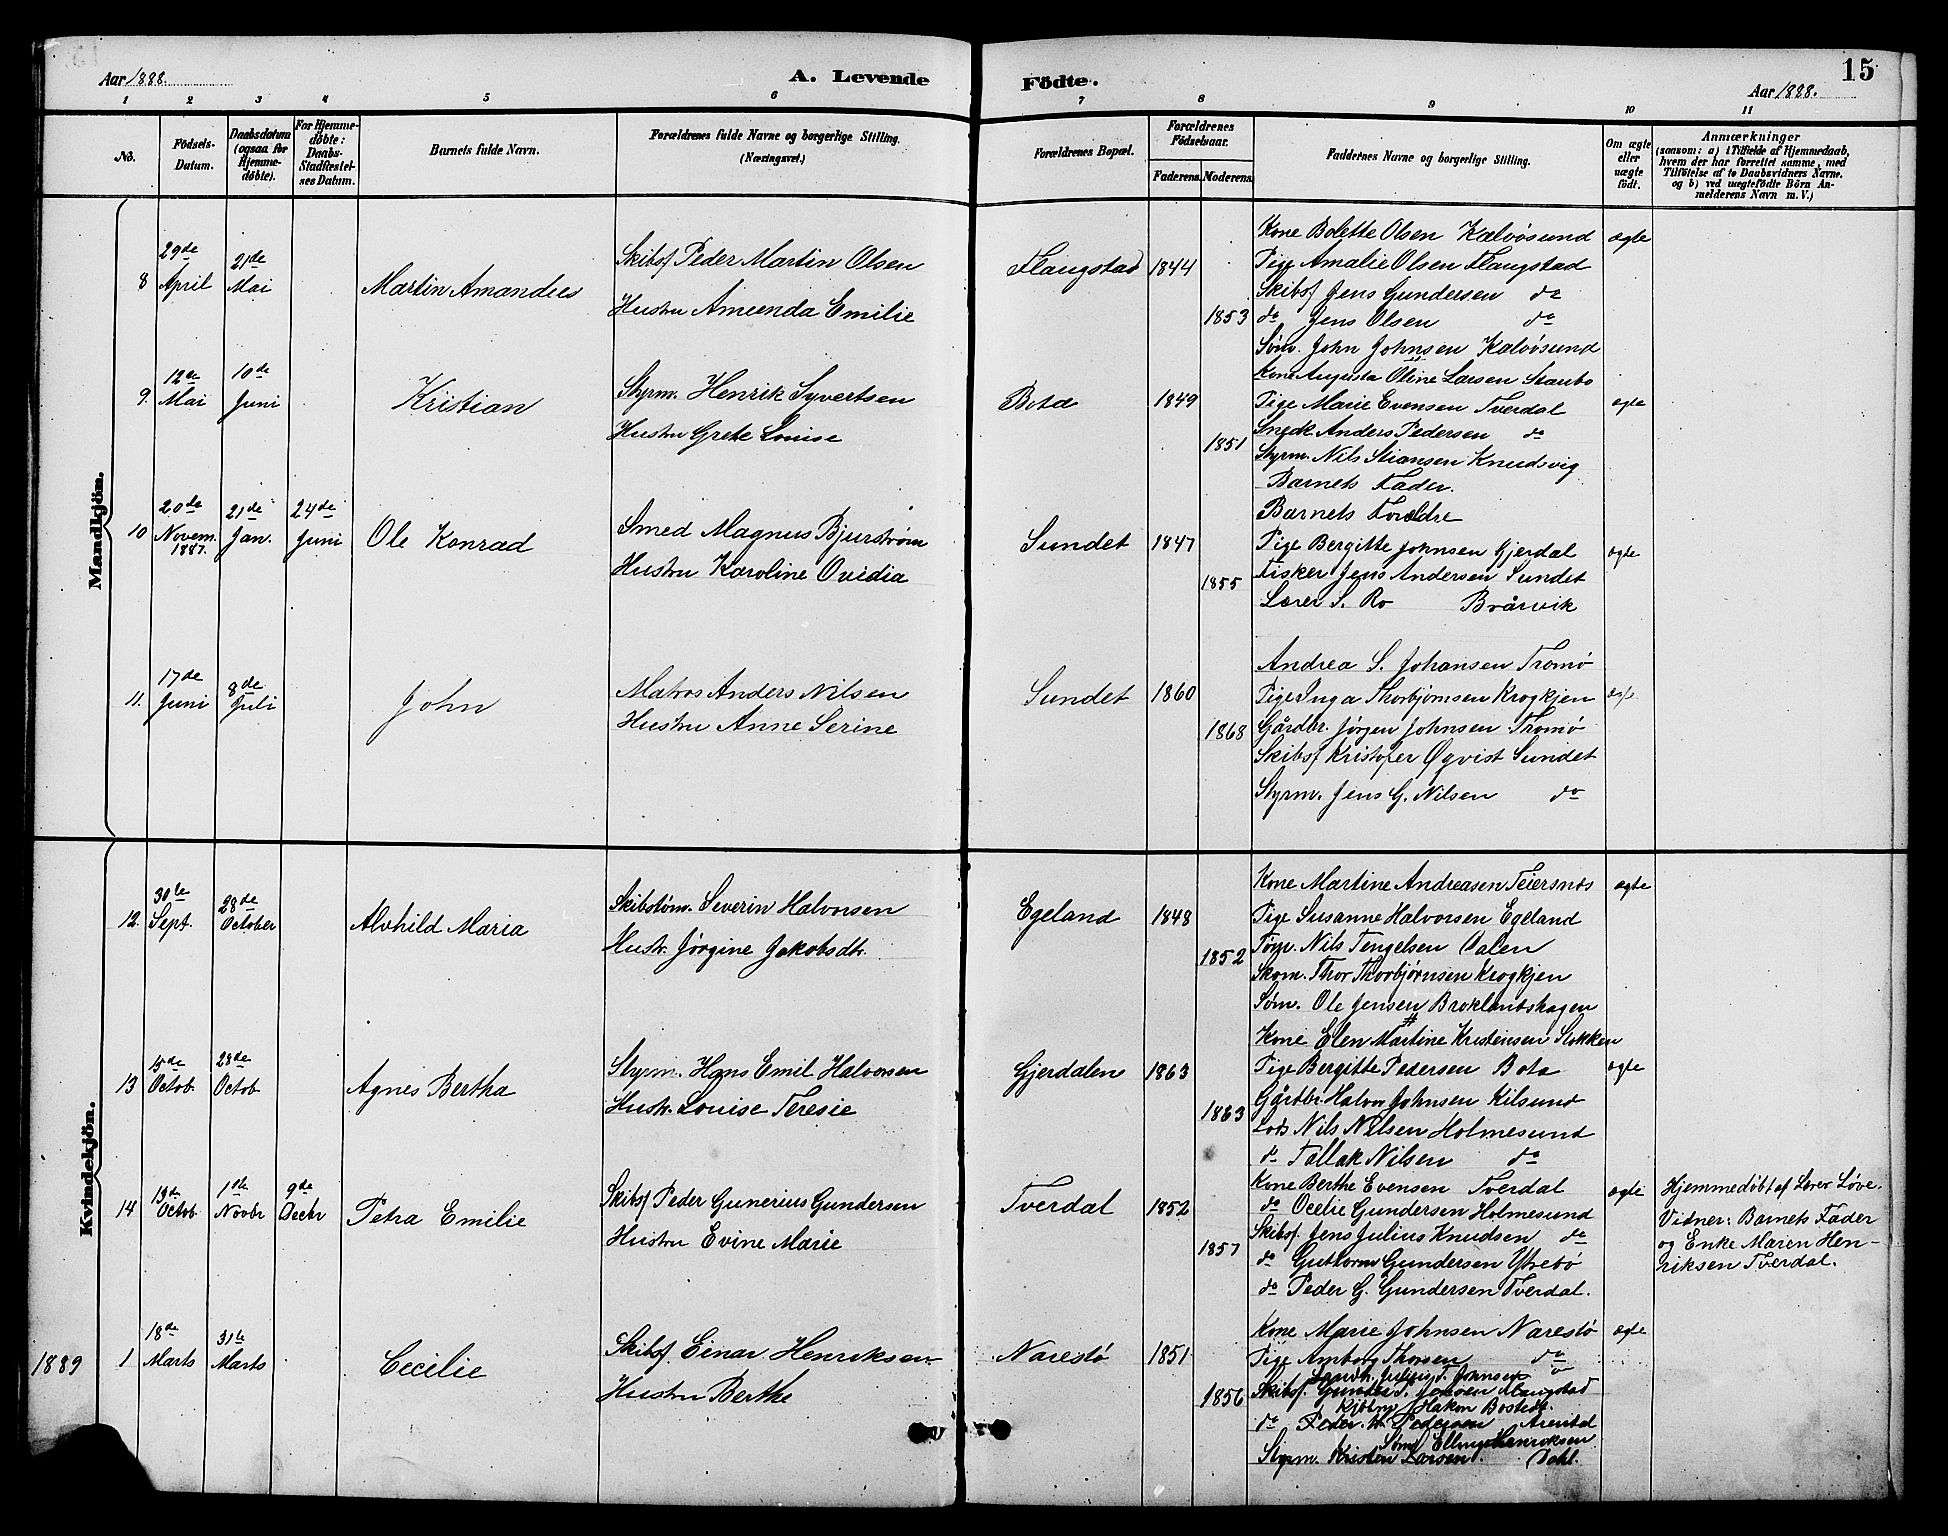 Aar 1888.
A. Levende
Födte.
Aar 1888.
15
1 2 3 4 5 6 7 8 9 10 11
No.
Födsels-Datum.
Daabsdatum (ogsaa for Hjemme-döbte).
For Hjemme-döbte: Daabs-Stadfæstel-ses Datum.
Barnets fulde Navn.
Forældrenes fulde Navne og borgerlige Stilling. (Næringsvei.)
Forældrenes Bopæl.
Forældrenes Födselsaar.
Faderens. Moderens.
Faddernes Navne og borgerlige Stilling.
Om ægte eller uægte födt.
Anmærkninger
(saasom: a) i Tilfælde af Hjemmedaab,
hvem der har forrettet samme, med
Tilföielse af to Daabsvidners Navne.
og b) ved uægtefödte Börn An-
melderens Navn m. V.)
Mandkjön.
8 29de April 21de Mai Martin Amandus
Skibsf Peder Martin Olsen
Hustru Amunda Emilie
Flangstad 1844 1853
Kone Bolette Olsen Kalvøsund ægte
Pige Amalie Olsen Flangstad
Skibsf Jens Gundersen do
do Jens Olsen do
Søm. John Johnsen Kalvøsund
9. 12de Mai 10de Juni Kristian
Styrm. Henrik Syvertsen
Hustru Grete Louise
Bota 1849 1851
Kone Augusta Oline Larsen Staubo
Pige Marie Evensen Tverdal ægte
Snedk Anders Pedersen do
Styrm. Nils Stiansen Knudsvig
Barnets Fader.
10 20de Novem. 1887. 21de Jan. 24de Juni Ole Konrad
Smed Magnus Bjurstrøm
Hustru Karoline Ovidia
Sundet 1847 1855
Barnets Forældre
Pige Bergitte Johnsen Gjerdal ægte
Fisker Jens Andersen Sundet
Lærer S. Ro Bråsvik
11. 17de Juni 8de Juli John
Matros Anders Nilsen
Hustru Anne Serine
Sundet 1860 1868
Andrea S. Johansen Tromø
Pige Inga Thorbjørnsen Krogkjen
Gårdbr. Jørgen Johnsen Tromø
Skibsf Kristofer Øqvist Sundet
Styrm. Jens G. Nilsen do
Kvindekjön.
12. 30te Sept. 28de October Alvhild Maria
Skibstøm. Severin Halvorsen
Hustr. Jørgine Jakobsdtr.
Egeland 1848 1852
Kone Martine Andreasen Teiersnes ægte
Pige Susanne Halvorsen Egeland
Nils Tengelsen Dalen
Skom. Thor Thorbjørnsen Krogkjen
Søm. Ole Jensen Broklandshagen
13 5de Octob 28de Octob Agnes Bertha
Styrm. Hans Emil Halvorsen
Hustr. Louise Teresie
Gjerdalen 1863 1863
Kone Elen Martine Kristensen Stokken
Pige Bergitte Pedersen Bota ægte
Gårdbr Halvor Johnsen Kilsund
Lods Nils Nilsen Holmesund
do Tallak Nilsen do
14 13de Octob 1ste Novbr 9de Decbr Petra Emilie
Skibsf Peder Gunerius Gundersen
Hustru Evine Marie
Tverdal 1852 1857
Kone Berthe Evensen Tverdal ægte
do Ocelie Gundersen Holmesund
Skibsf. Jens Julius Knudsen do
do Guttorm Gundersen Ytrebø
do Peder G. Gundersen Tverdal.
Hjemmedøbt af Lærer Løve.
Vidner: Barnets Fader
og Enke Maren Hen-
riksen Tverdal.
1889 1 18de Marts 31te Marts Cecilie
Skibsf. Einar Henriksen
Hustru Berthe
Narestø 1851 1856
Kone Marie Johnsen Narestø ægte
Pige Amborg Thorsen do
Landh. Julius T. Johnsen
Skibsf.
Kjøbm Hakon Bostedt.
do Peder Arendal
Søm Elling Henriksen
Styrm. Kristen Larsen. Dahl.